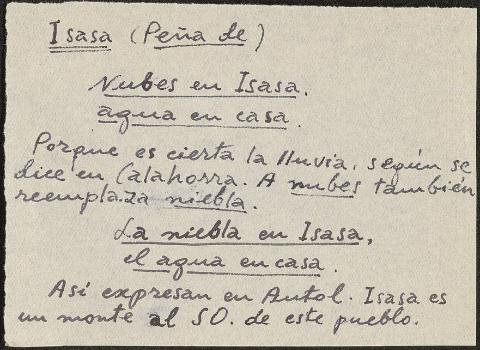 Isasa (Peña de)
Nubes en Isasa,
agua en casa.
Porque es cierta la lluvia, según se
dice en Calahorra. A nubes también
reemplaza niebla.
La niebla en Isasa,
el agua en casa.
Así expresan en Autol. Isasa es
un monte al SO. de este pueblo.